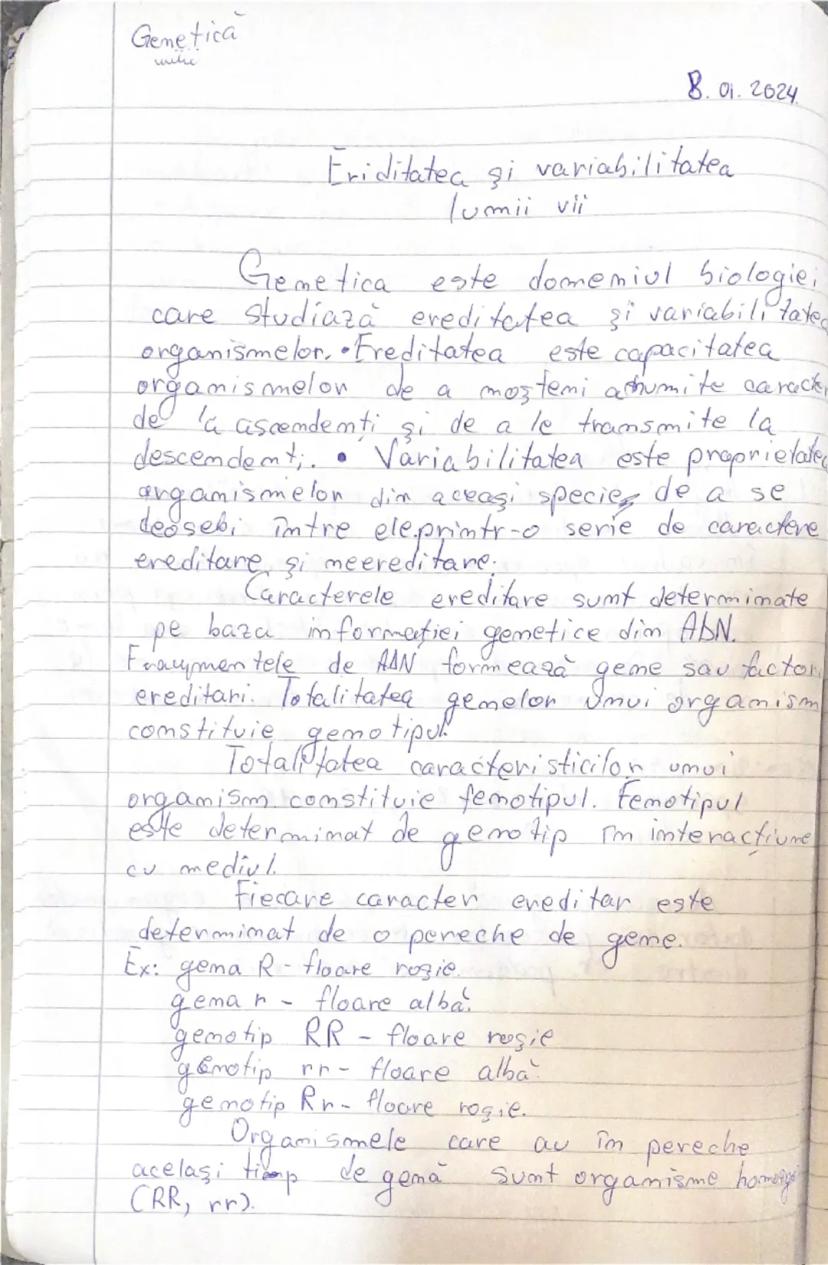 Genetică
8.01.2024
Eriditatea și variabilitatea
lumii vii
Genetica este domeniul biologiei
care studiază ereditatea și variabilitatea
organismelor. • Ereditatea este capacitatea
organismelor de a moșteni anumite caract
de la ascendenți și de a le transmite la
descendenți. • Variabilitatea este proprietatea
organismelor din aceași specie, de a se
deosebi între ele printr-o serie de caractere
ereditare și neereditare.
Caracterele ereditare sunt determinate
pe baza informației genetice din ADN.
de ADN formează gene sau factor
ereditari. Totalitatea genelor unui organism
constituie genotipul.
Totalitatea caracteristicilor unui
organism constituie fenotipul. Fenotipul
este determinat de genotip în interacțiune
cu mediul.
Fiecare caracter ereditar este
determinat de o pereche de gene.
Ex: gena R - floare roșie.
gena r - floare albă.
genotip RR - floare roșie
genotip rr - floare albă.
genotip Rr - floare roșie.
Organismele care au în pereche
același tip de genă sunt organisme homozi
(RR, rr).